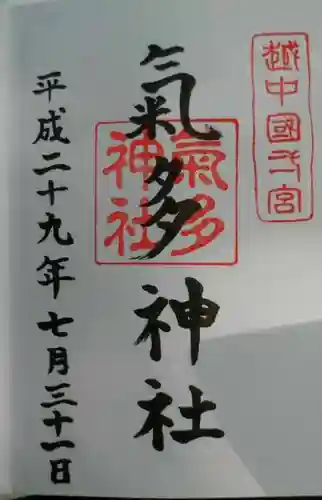 越中國一宮
氣多神社
氣多
神社
平成二十九年七月三十一日